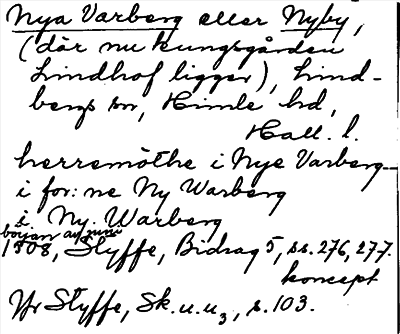 Nya Varberg eller Nyby,
(där nu kungsgården
Lindhof ligger), Lind-
bergs sn, Himle hd,
Hall. l.
herremöthe i Nye Varberg
i for: ne Ny Warberg
i Ny. Warberg
början av juni
1508, Styffe, Bidrag 5, ss. 276, 277.
koncept
Jfr Styffe, Sk. u. u3, s. 103.